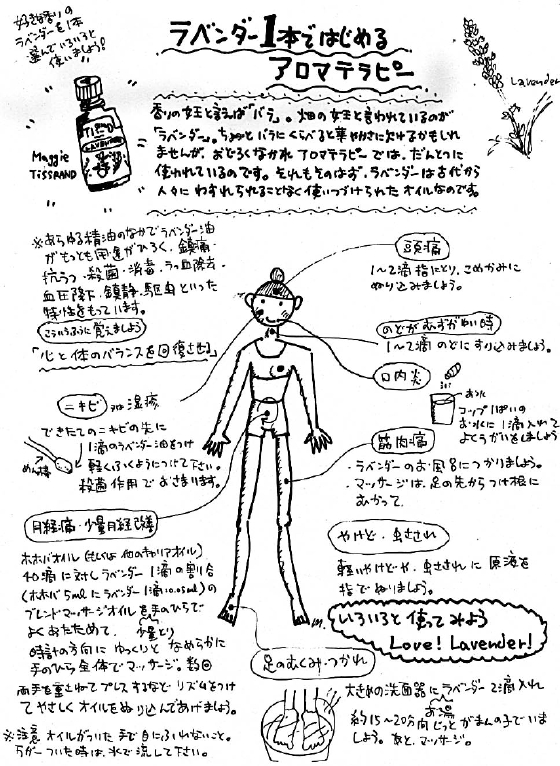 好きな香りの
ラベンダーを1本
選んでいろいろと
使いましょう!
ラベンダー1本ではじめる
アロマテラピー
Lavender
Maggie
TISSRAND
香りの女王と言えば「バラ」。畑の女王と言われているのが
「ラベンダー」。ちょっとバラにくらべると華やかさに欠けるかもしれ
ませんが、おどろくなかれ アロマテラピーでは、だんとつに
使われているのです。それもそのはず。ラベンダーは古代から
人々にわすれられることなく使いつづけられたオイルなのです。
※あらゆる精油のなかでラベンダー油
がもっとも用途がひろく、鎮痛・
抗うつ・殺菌・消毒・うっ血除去・
血圧降下・鎮静・駆虫といった
特性をもっています。
こういうふうに覚えましょう
「心と体のバランスを回復させる」
頭痛
1〜2滴指にとり、こめかみに
ぬり込みましょう。
のどがむずがゆい時
1〜2滴のどにすり込みましょう。
口内炎
コップ1ぱいの
お水に1滴入れて
よくうがいをしましょう
ニキビ
湿疹
できたてのニキビの先に
1滴のラベンダー油をつけ
軽くふくようにつけて下さい。
殺菌作用でおさまります。
めん棒
筋肉痛
・ラベンダーのお風呂につかりましょう。
・マッサージは、足の先からつけ根に
むかって、
月経痛・少量月経改善
ホホバオイル(もしくは他のキャリアオイル)
40滴に対しラベンダー1滴の割合
(ホホバ5mlにラベンダー1滴0.05ml)の
ブレンドマッサージオイルを手のひらで
よくあたためて、少量とり
時計の方向にゆっくりとなめらかに
手のひら全体でマッサージ。数回
両手を重ねてプレスするなどリズムをつけ
てやさしくオイルをぬり込んであげましょう。
※注意 オイルがついた手で目にふれないこと。
万が一ついた時は、水で流して下さい。
やけど・虫さされ
軽いやけどや、虫さされに原液を
指でぬりましょう。
いろいろと使ってみよう
Love! Lavender!
足のむくみ・つかれ
大きめの洗面器にラベンダー2滴入れ
約15〜20分間じっとがまんの子でいま
しょう。あと、マッサージ。